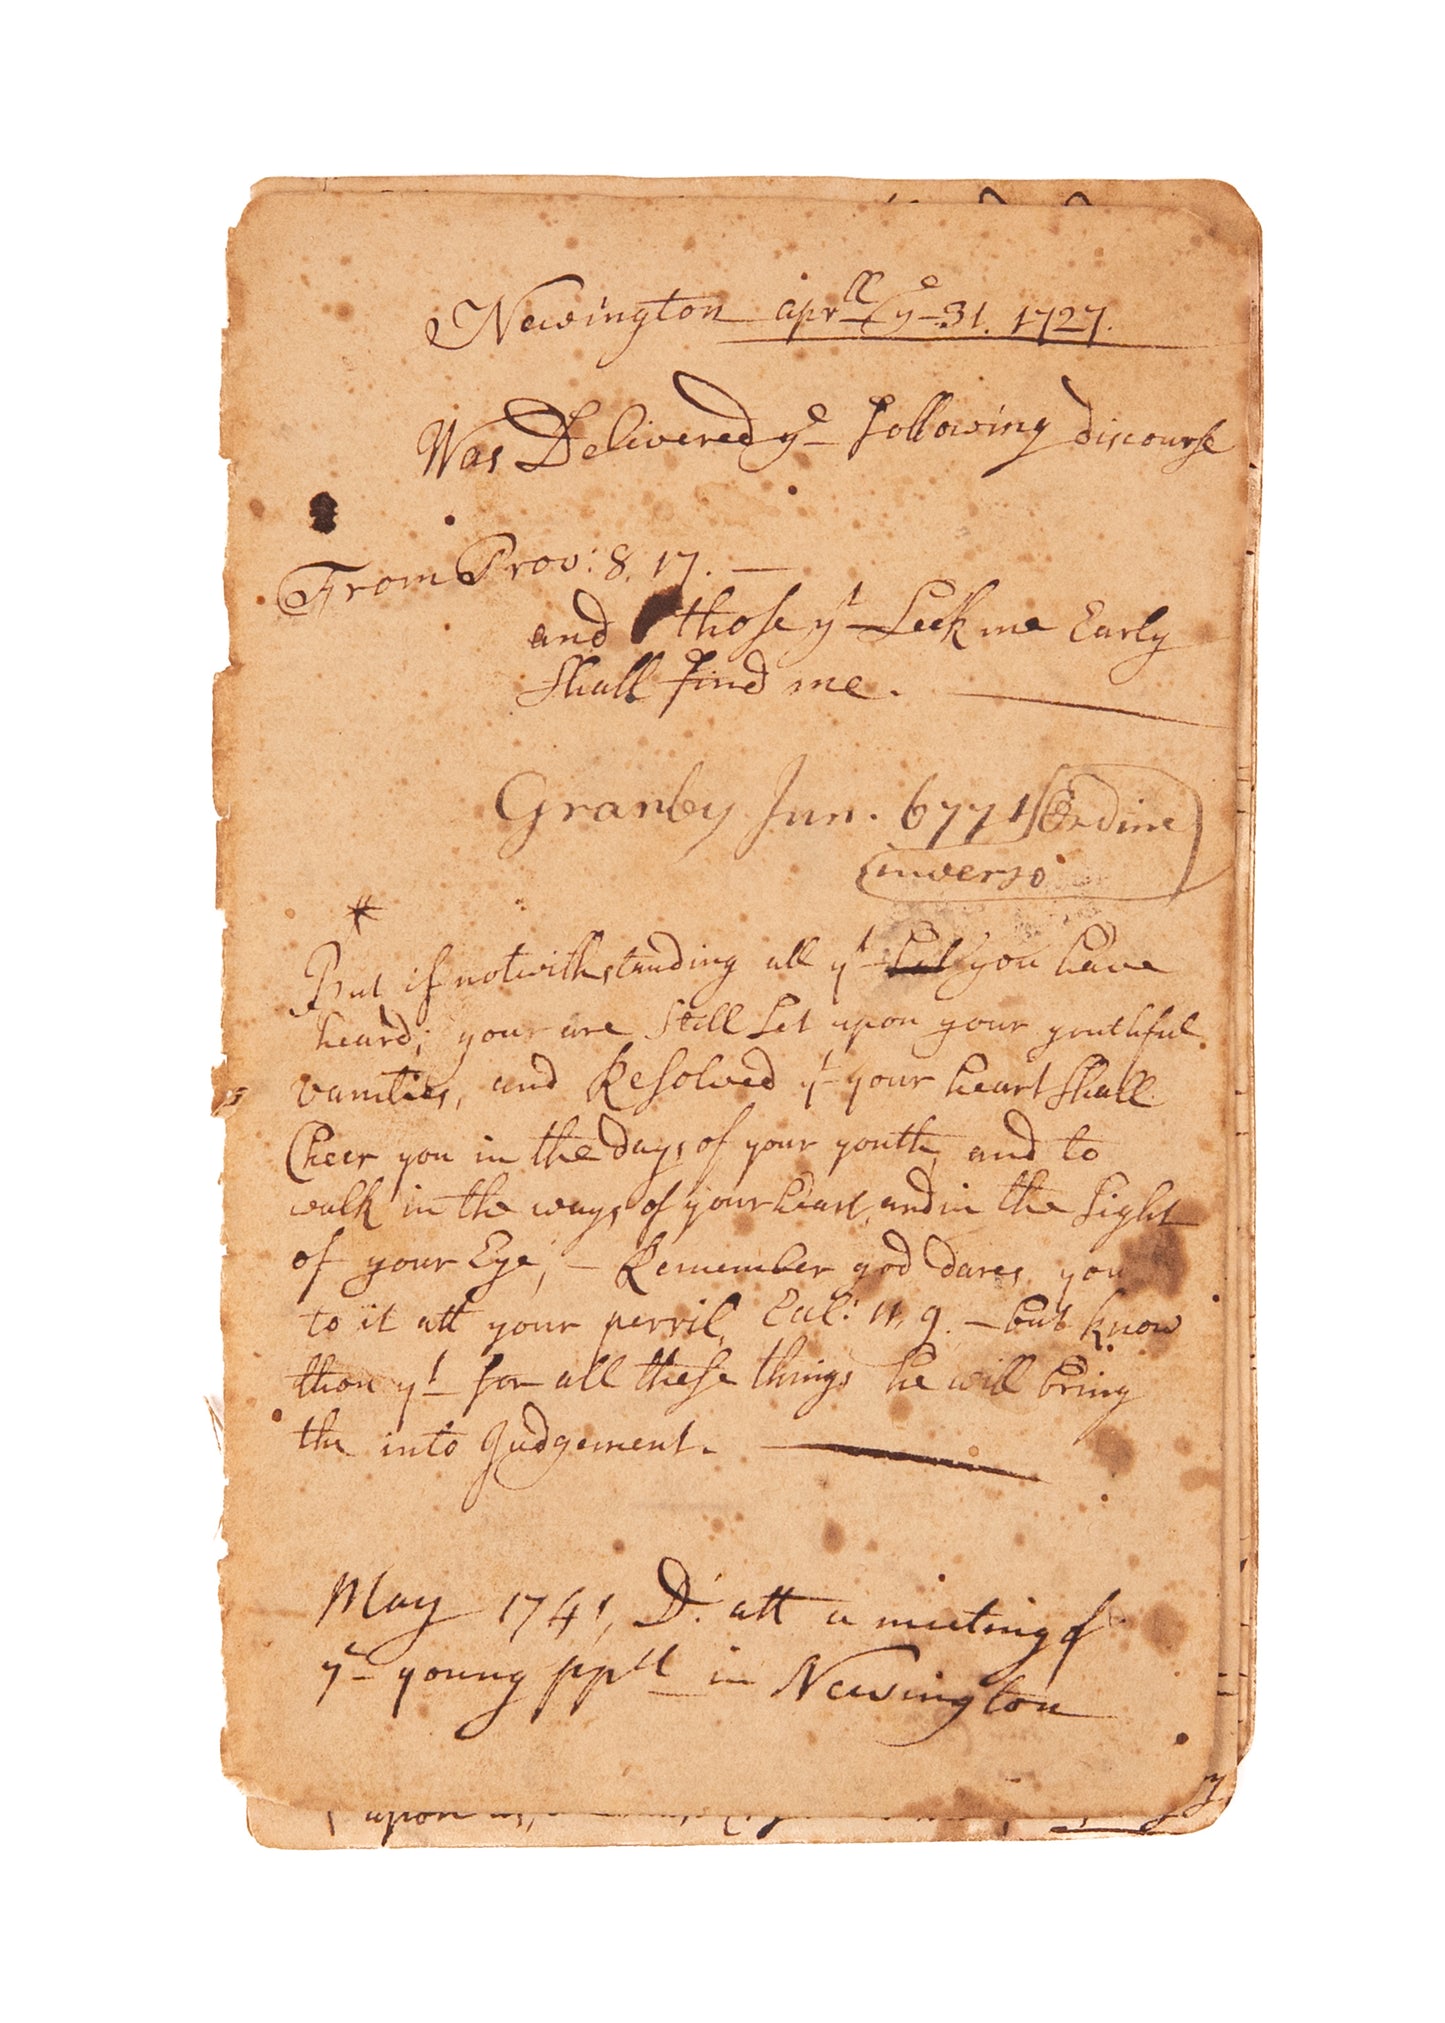 Newington aprll ye 31. 1727.
Was Delivered ye following discourse
From Prov: 8. 17. —
and those yt Seek me Early
Shall find me.
Granby Jun. 6771 (Ordine
inverso)
*
But if notwithstanding all yt you have
heard; your are Still Set upon your youthful
vanities, and Resolved yt your heart Shall
Cheer you in the days of your youth, and to
walk in the ways of your heart, and in the Sight
of your Eye; — Remember god dares you
to it att your perril, Ecl: 11, 9. — but know
thou yt for all these things he will bring
the into Judgement.
May 1741, D: att a meeting of
ye young ppll in Newington
upon us,